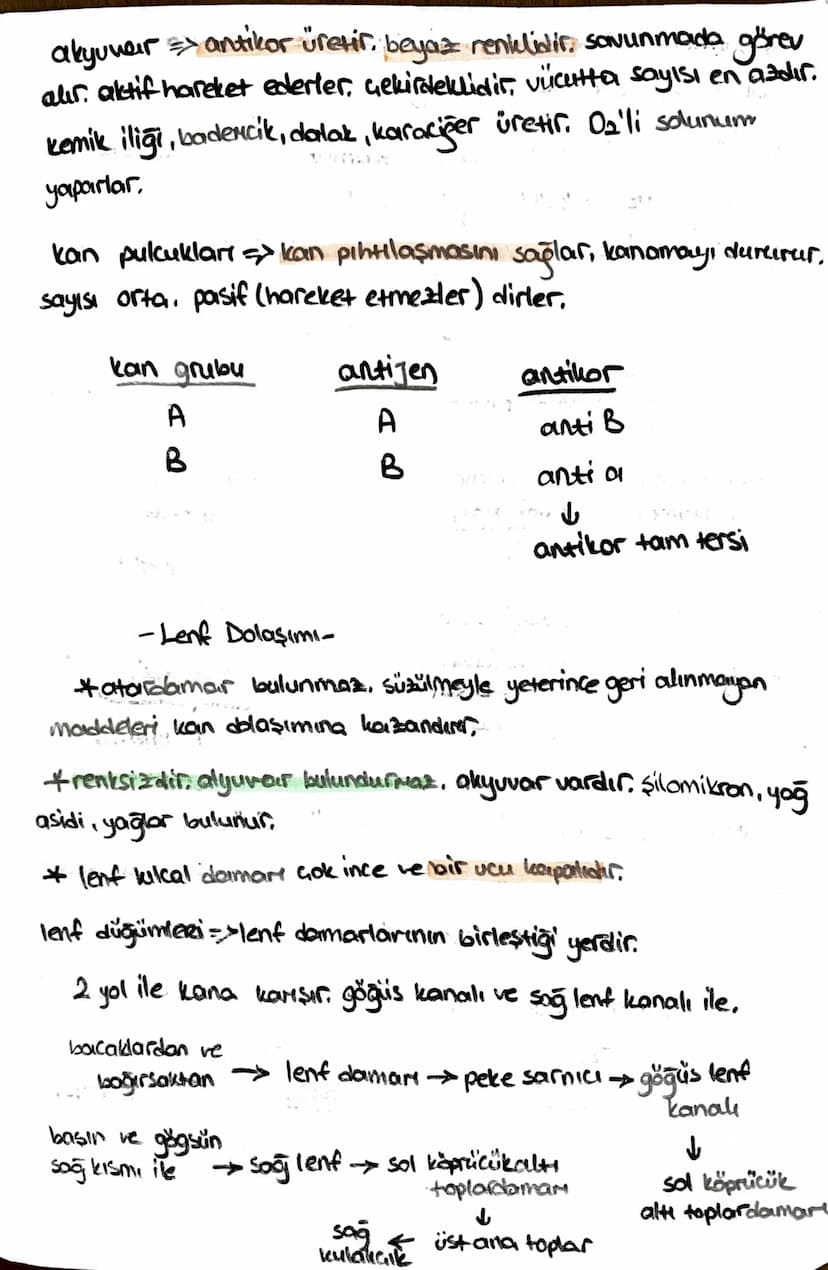 akyuvar => antikor üretir. beyaz renklidir. savunmada görev
alır. aktif hareket ederler. çekirdeklidir. vücutta sayısı en azdır.
kemik iliği, bademcik, dalak, karaciğer üretir. O2'li solunum
yaparlar.
kan pulcukları => kan pıhtılaşmasını sağlar, kanamayı durdurur.
sayısı orta. pasif (hareket etmezler) dirler.
kan grubu antijen antikor
A A anti B
B B anti a
↓
antikor tam tersi
- Lenf Dolaşımı -
* atardamar bulunmaz. süzülmeyle yeterince geri alınmayan
maddeleri kan dolaşımına kazandırır.
* renksizdir. alyuvar bulundurmaz. akyuvar vardır. şilomikron, yağ
asidi, yağlar bulunur.
* lenf kılcal damarı çok ince ve bir ucu kapalıdır.
lenf düğümleri => lenf damarlarının birleştiği yerdir.
2 yol ile kana karışır. göğüs kanalı ve sağ lenf kanalı ile.
bacaklardan ve
bağırsaktan → lenf damarı → peke sarnıcı → göğüs lenf
kanalı
↓
sol köprücük
altı toplardamarı
başın ve göğsün
sağ kısmı ile → sağ lenf → sol köprücükaltı
toplardamarı
↓
sağ ← üst ana toplar
kulakçık